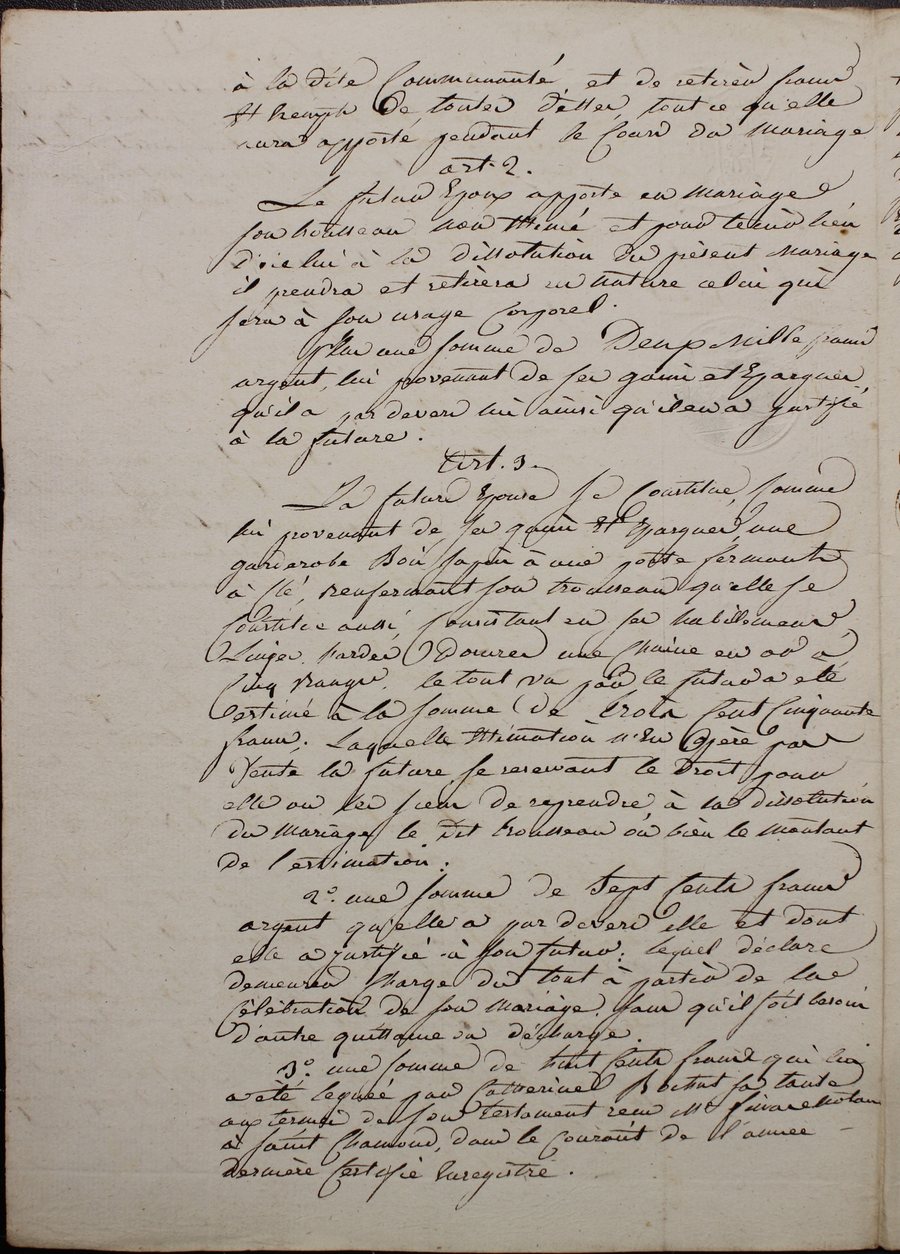 à la dite Communauté et de retirer franc
et exempt de toutes dettes, tout ce qu'elle
aura apporté pendant le Cours du Mariage
art. 2.
Le futur Epoux apporte en Mariage
son trousseau non Estimé et pour tenir lieu
d'icelui à la dissolution du présent Mariage
il prendra et retirera en nature celui qui
sera à son usage Corporel.
Plus une somme de Deux Mille francs
argent, lui provenant de ses gains et Epargnes
qu'il a par devers lui ainsi qu'il en a justifié
à la future.
Art. 3.
La future Epouse se Constitue, comme
lui provenant de ses gains et Epargnes une
garderobe Bois sapin à une porte fermante
à clé, renfermant son trousseau qu'elle se
Constitue aussi, Consistant en ses habillements,
Linges, hardes, Dorures une Chaine en or à
Cinq Rangs, le tout vu par le futur a été
Estimé à la somme de Trois Cent Cinquante
francs, Laquelle Estimation n'en opère pas
Vente la future se reservant le Droit pour
elle ou les siens de reprendre à la dissolution
du Mariage le Dit trousseau où bien le Montant
de l'estimation.
2°. une somme de Sept Cents francs
argent qu'elle a par devers elle et dont
elle a justifié à son futur; lequel déclare
demeurer Chargé du tout à partir de la
Célébration de son Mariage, sans qu'il soit besoin
d'autre quittance ou décharge.
3°. une somme de huit Cents francs qui lui
a été leguée par Catherine sa tante
aux termes de son Testament recu Me Notaire
à saint Chamond, dans le Courant de l'année
dernière Certifié Enregistré.